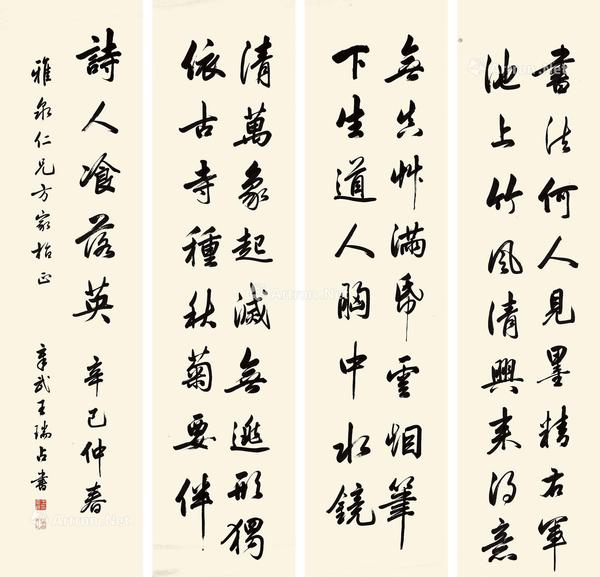 書法何人見墨精右軍
池上竹風清興來得意
無真艸滿帋雲烟筆
下生道人胸中水鏡
清萬象起滅無逃形獨
依古寺種秋菊要伴
詩人飡落英 辛巳仲春
雅泉仁兄方家指正 章武王瑞占書
Artron.Net